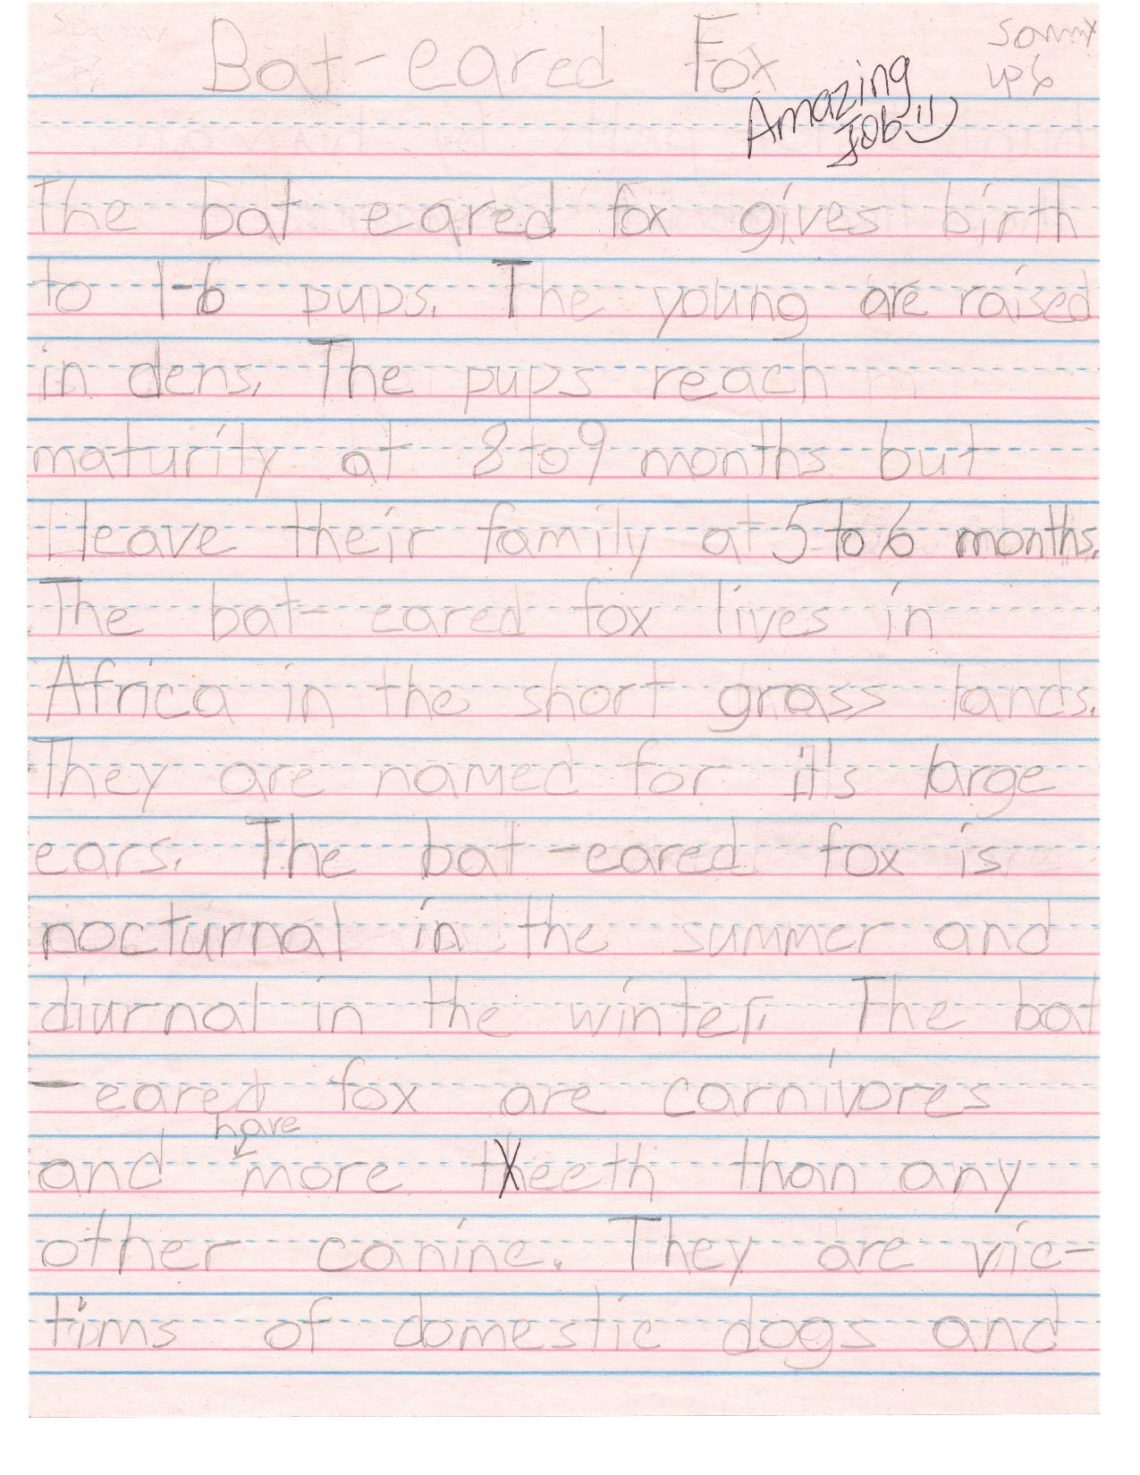 Bat-eared Fox
Sammy
Amazing
Job
The bat eared fox gives birth
to 1-6 pups. The young are raised
in dens. The pups reach
maturity at 8 to 9 months but
leave their family at 5 to 6 months.
The bat-eared fox lives in
Africa in the short grass lands.
They are named for it's large
ears. The bat-eared fox is
nocturnal in the summer and
diurnal in the winter. The bat
-eared fox are carnivores
have
and more teeth than any
other canine. They are vic-
tims of domestic dogs and